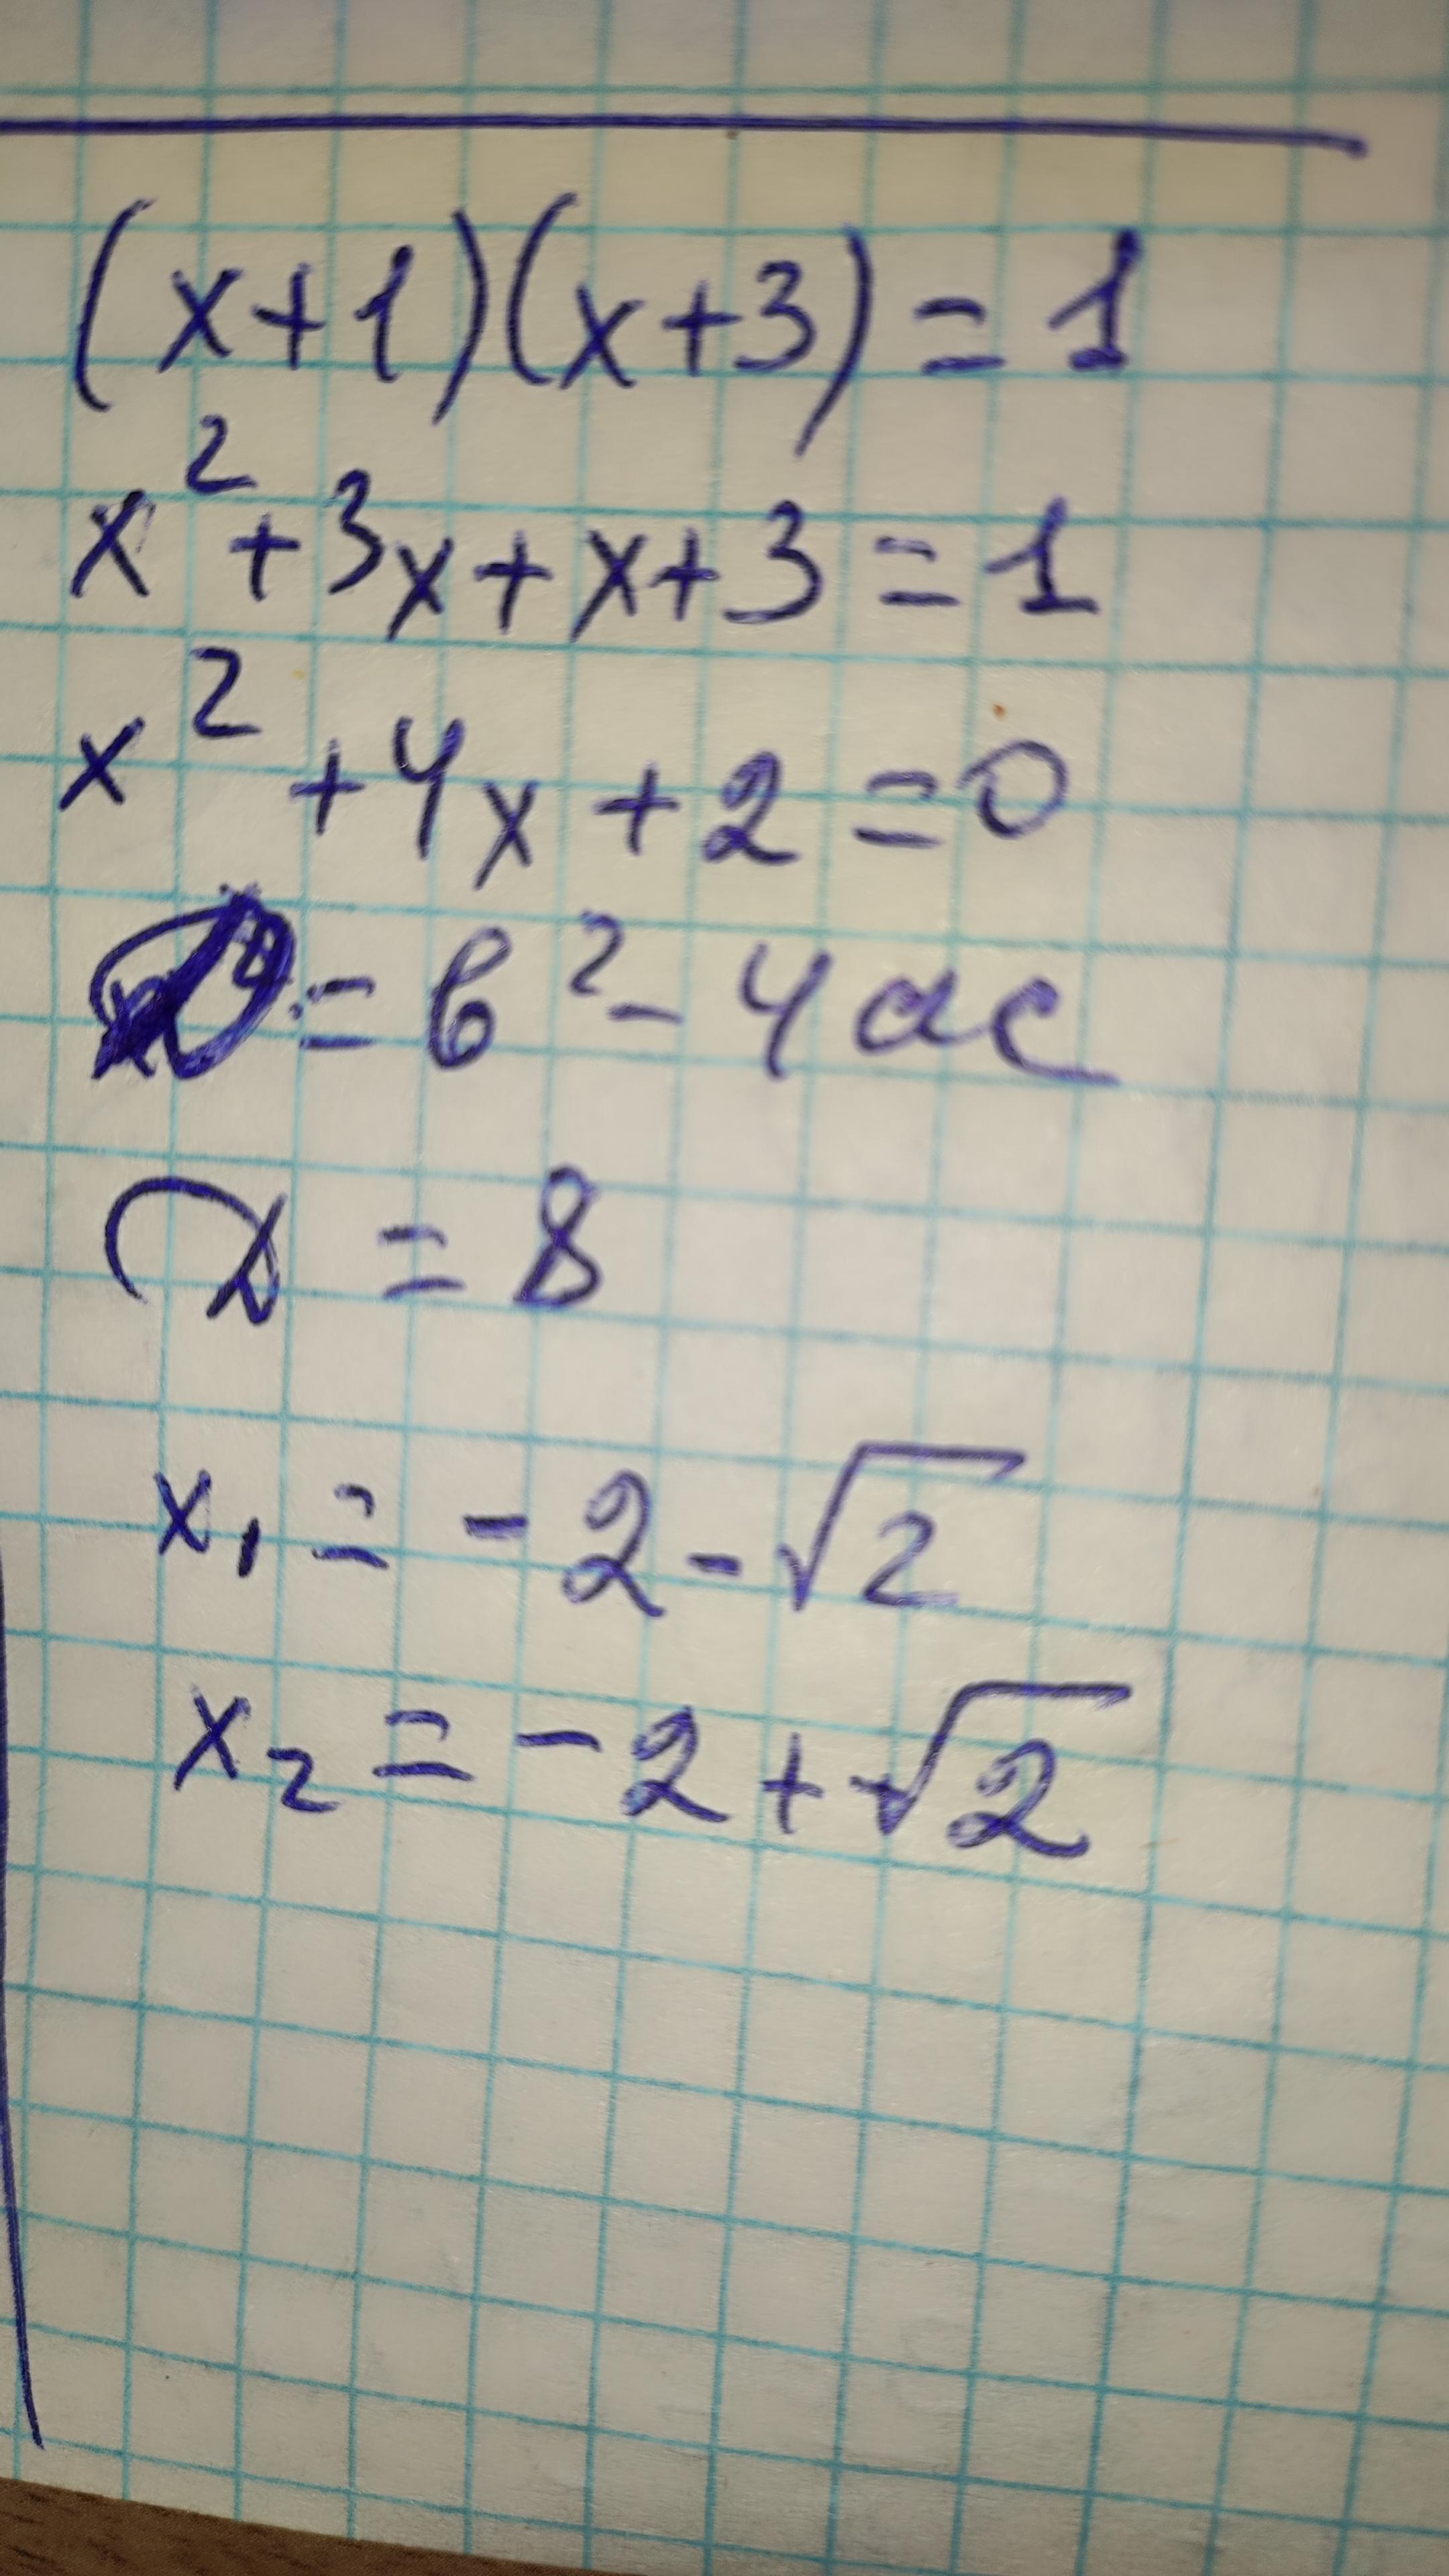 (x+1)(x+3)=1
x²+3x+x+3=1
x²+4x+2=0
D=b²-4ac
D=8
x₁=-2-√2
x₂=-2+√2